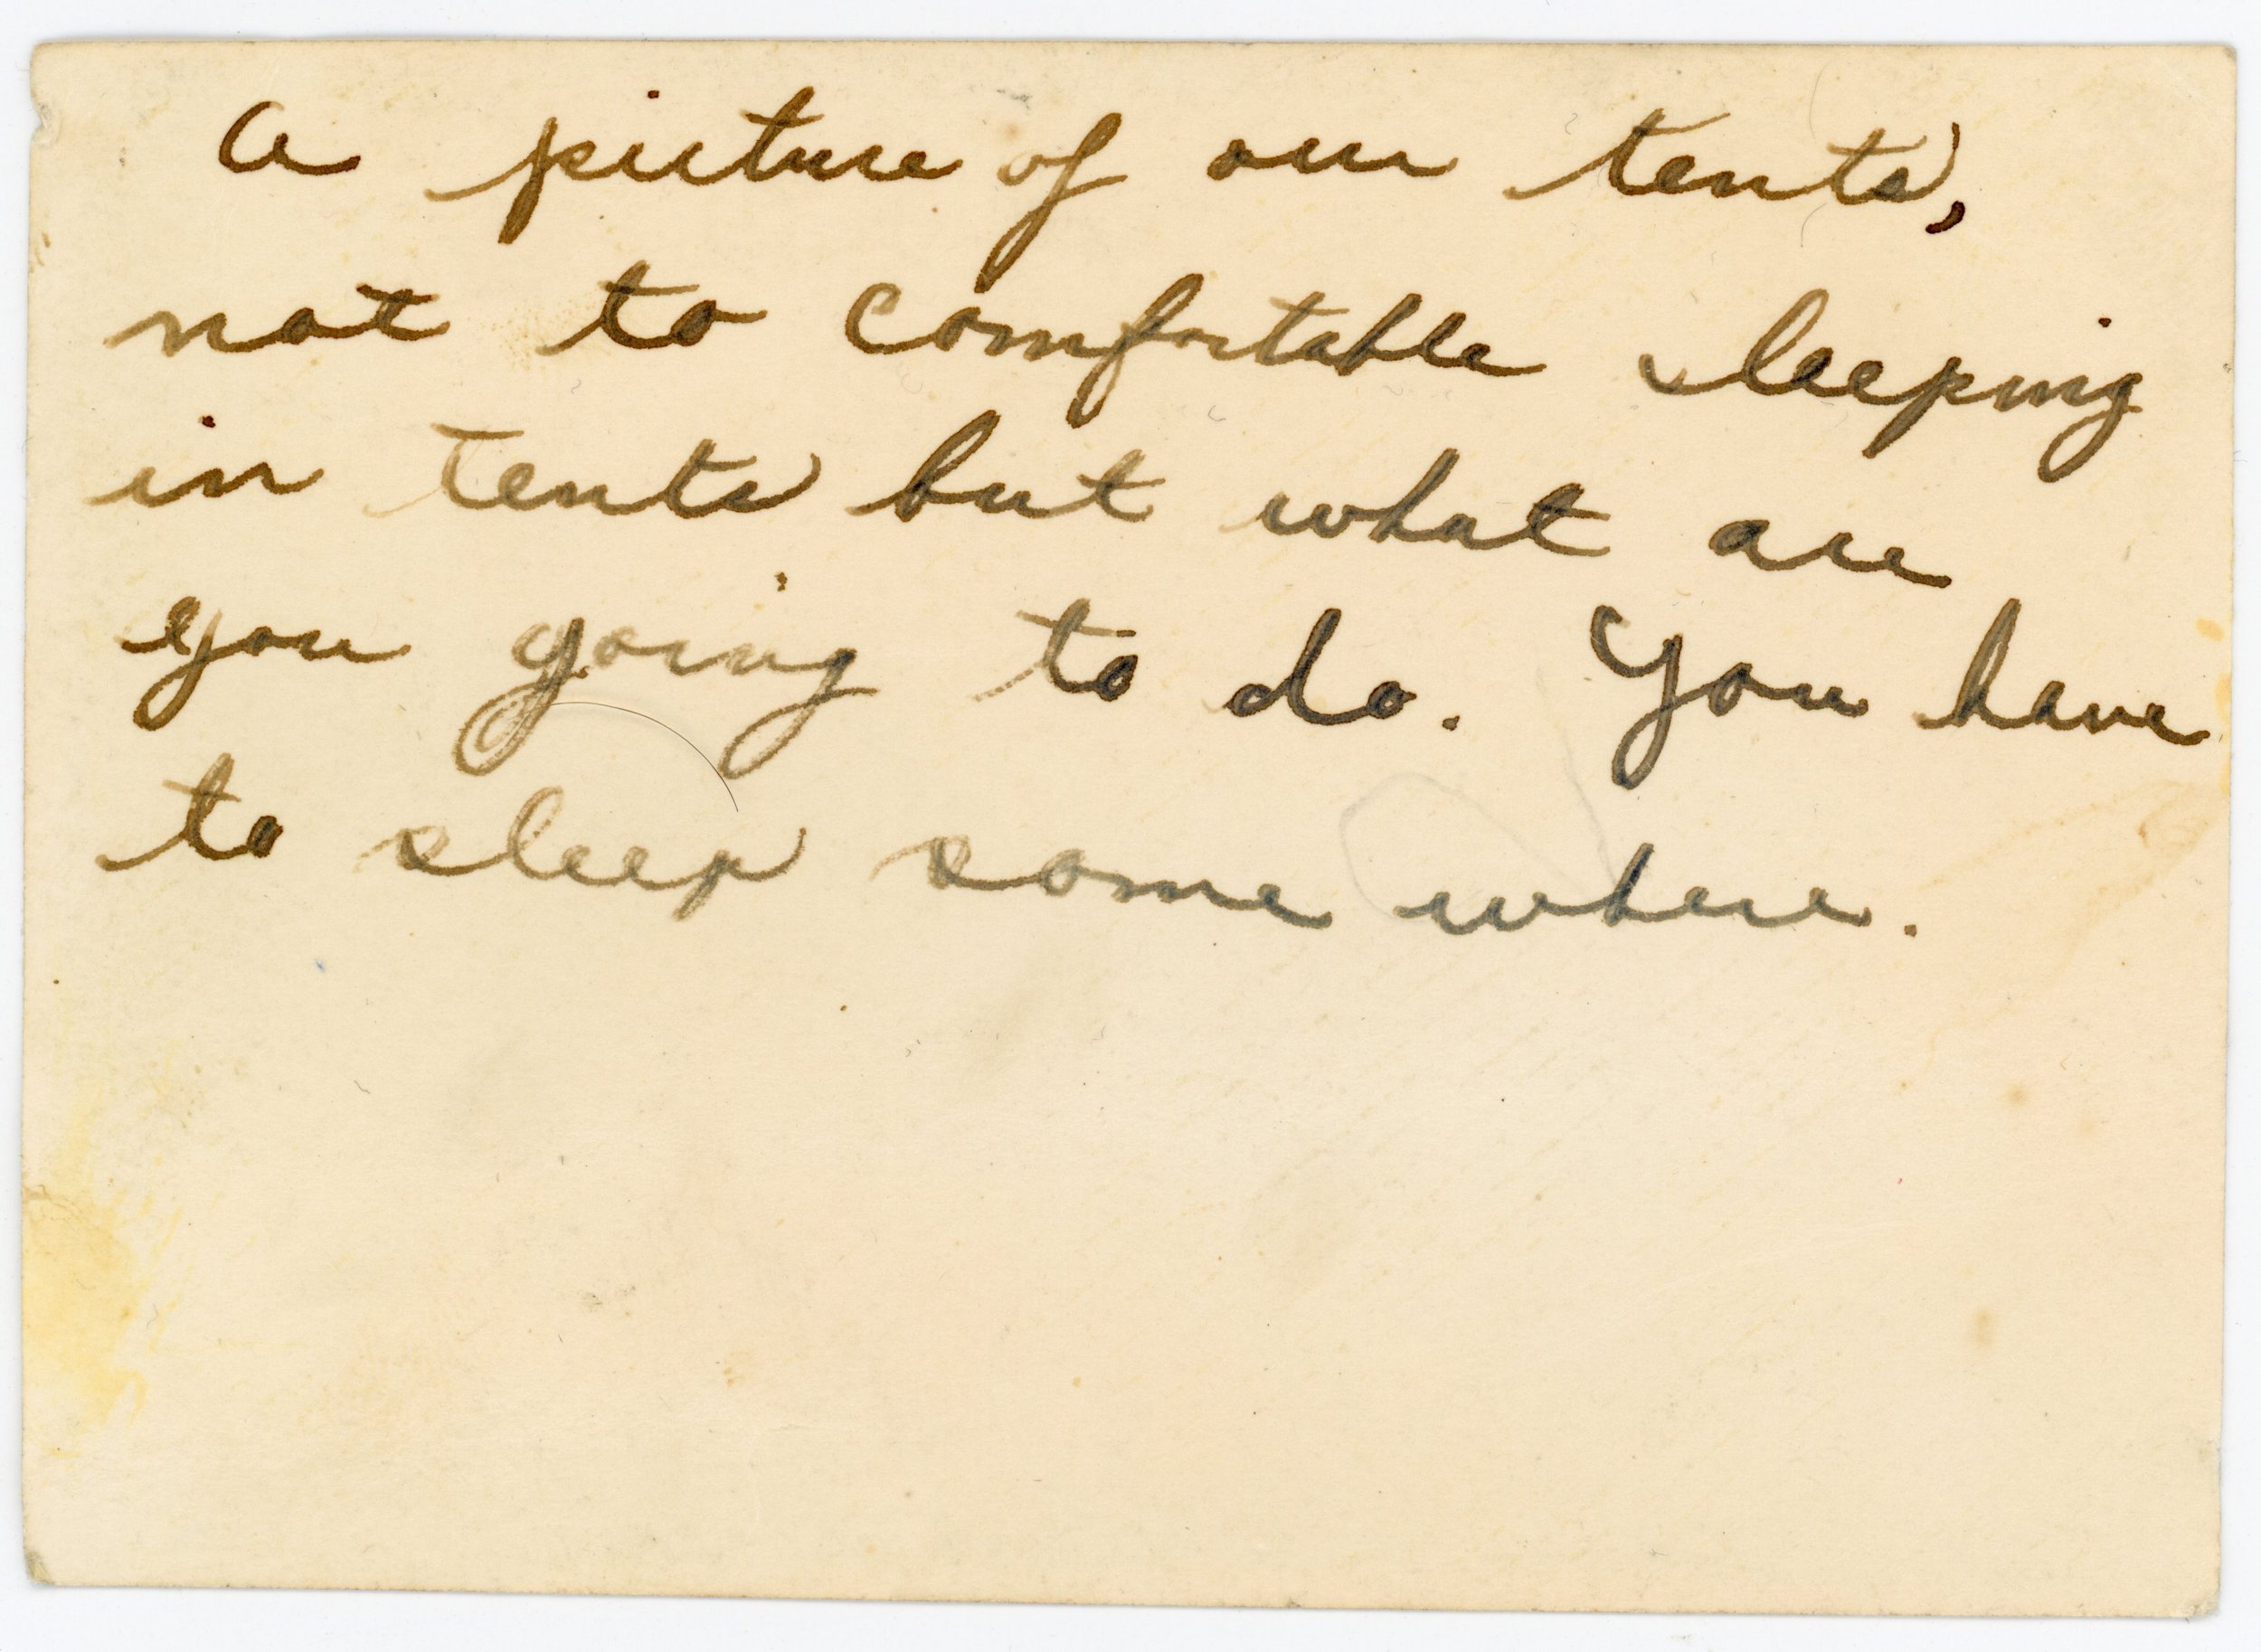 a picture of our tents,
not to comfortable sleeping
in tents but what are
you going to do. You have
to sleep some where.